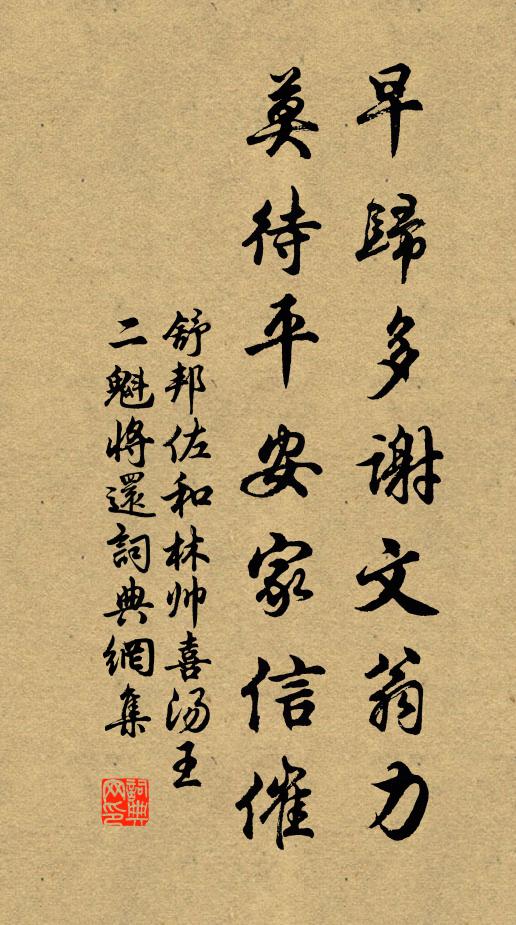 早歸多謝文翁力
莫待平安家信催
舒邦佐和林帅喜汤王
二魁將還詞典網集
詞典
网印